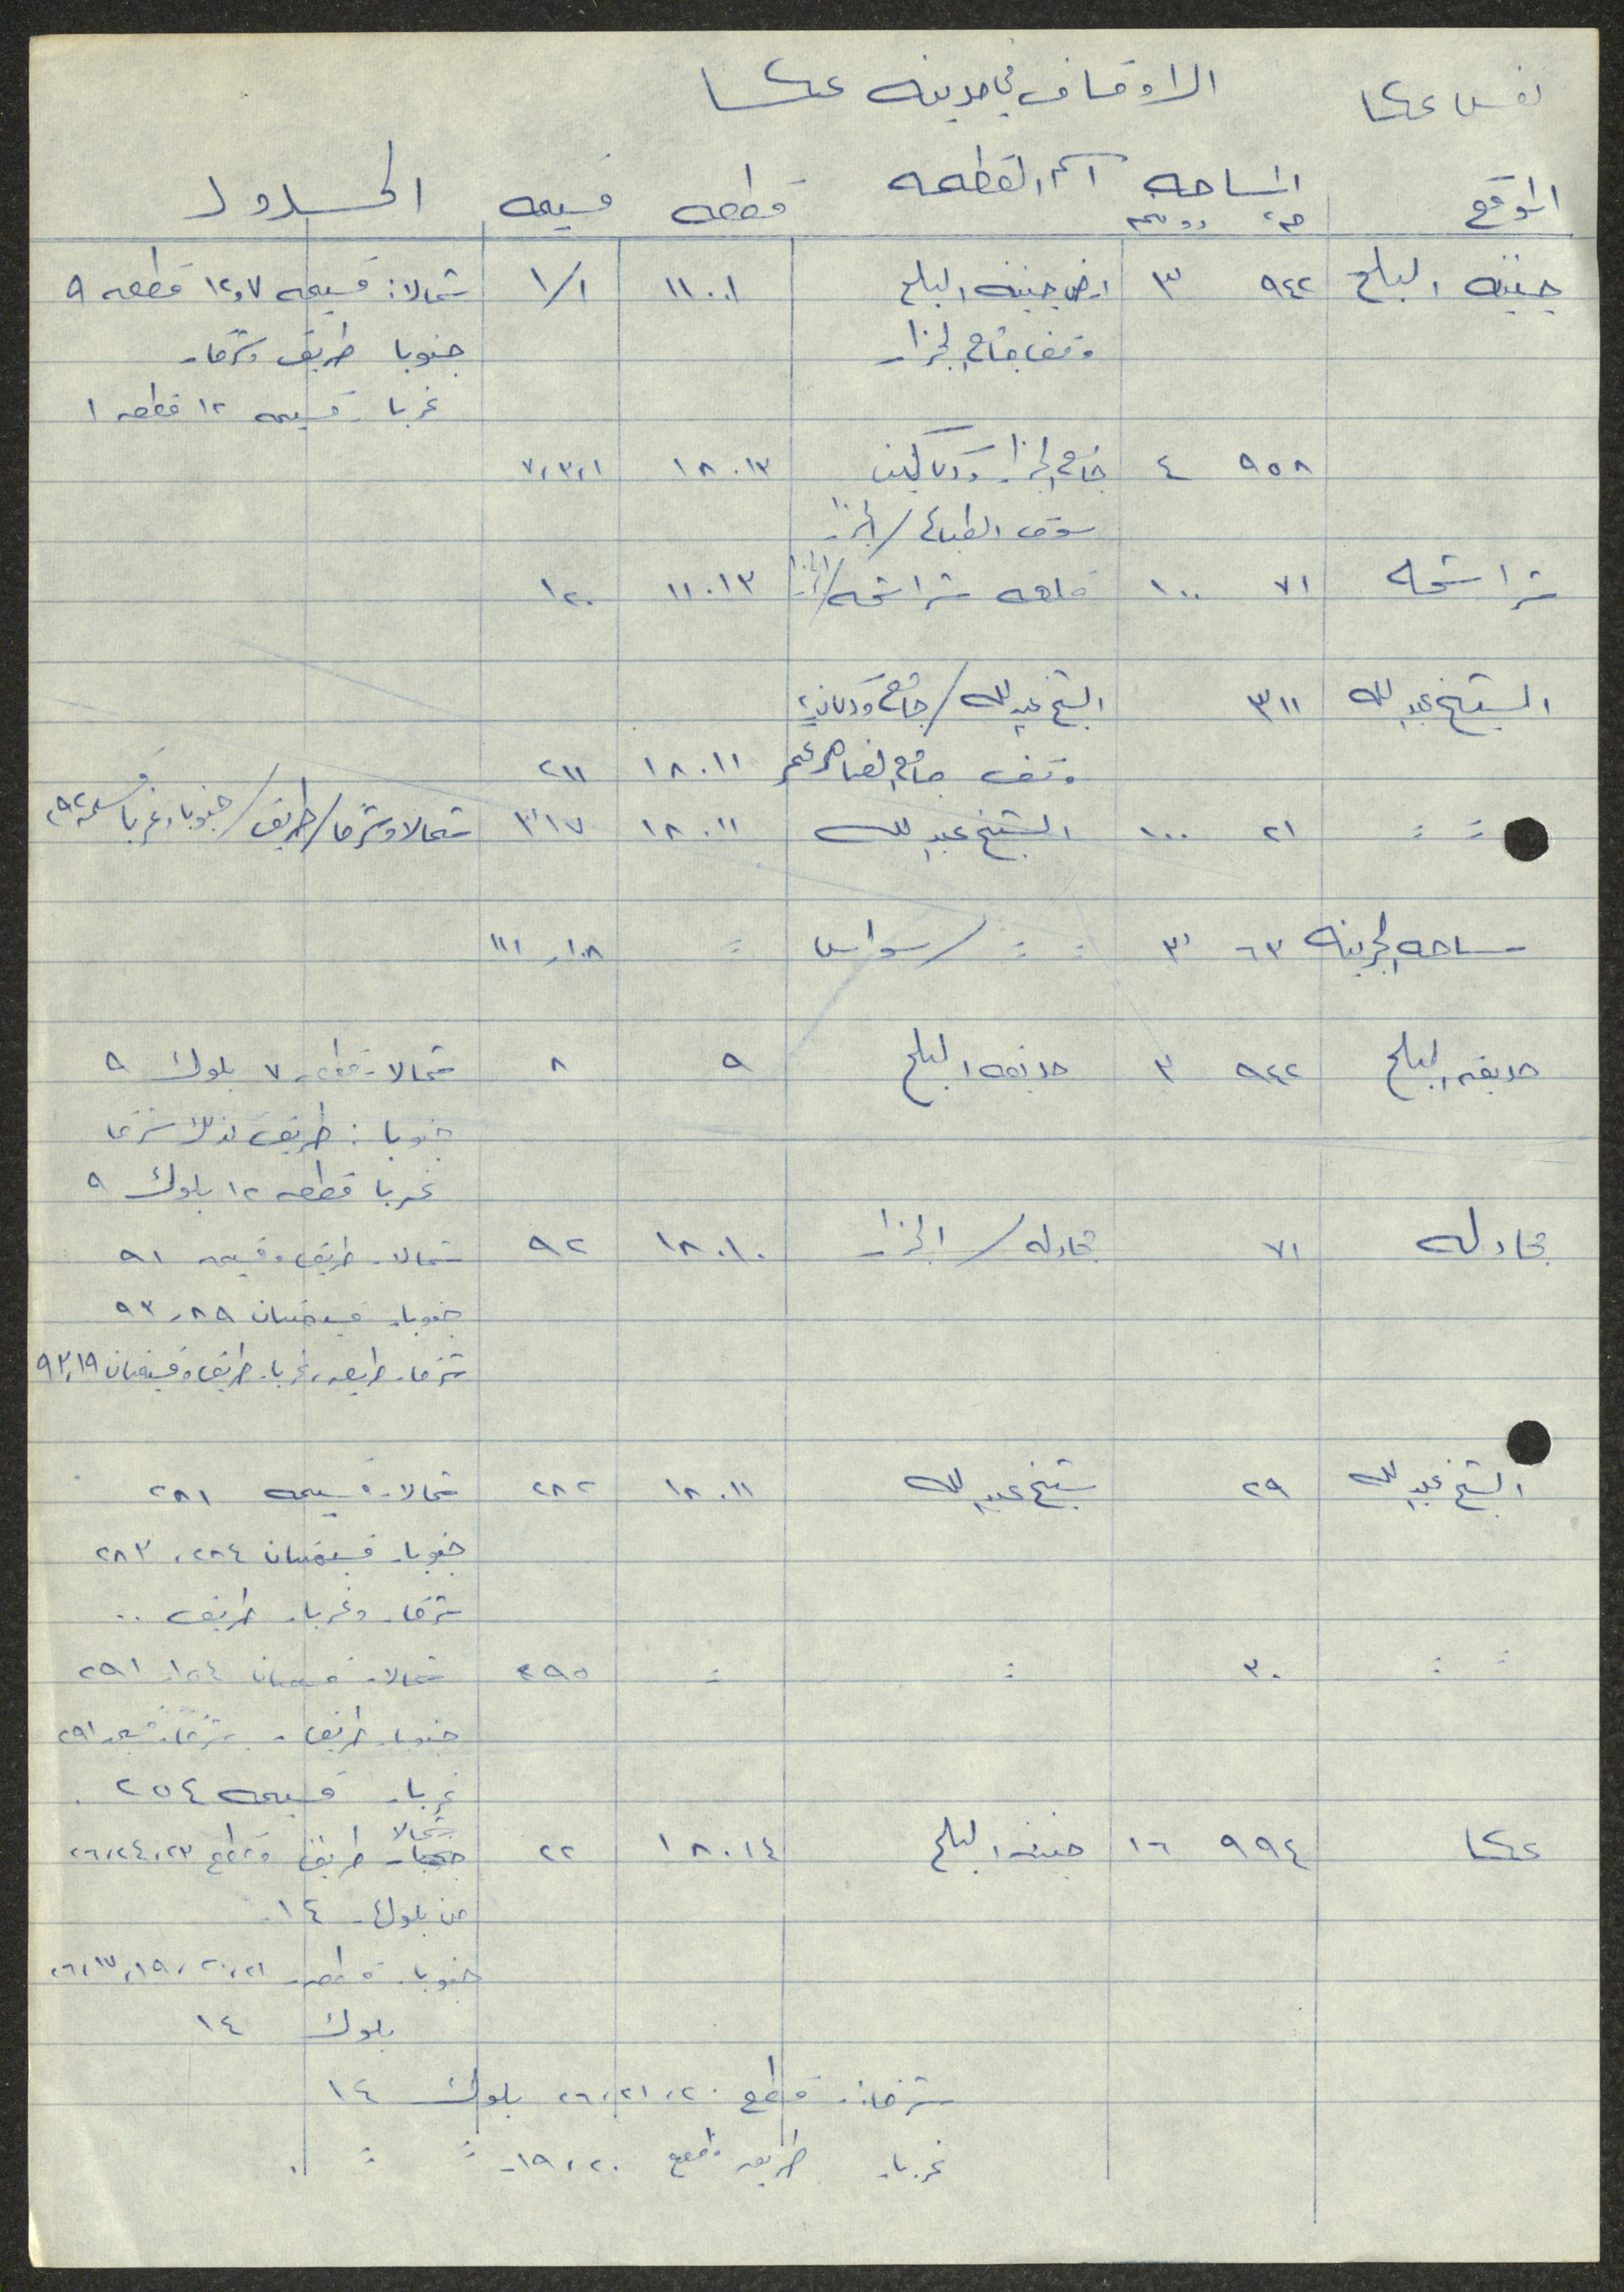 نفس عكا
الاوقاف في مدينه عكا
الموقع المساحه اسم القطعه قطعه قسيمه الحدود
م٢ دونم
جنينه البلح ٩٤٢ ٣ ارض جنينه البلح ١١٠٠١ ١/١ شمالا: قسيمه ٧و١٢ قطعه ٩
وقف جامع الجزار جنوبا طريق وشرقا
غربا قسيمه ١٢ قطعه ١
٩٥٨ ٤ جامع الجزار ودكاكين ١٨٠١٣ ٧،٣،١
سوق / الجزار
شراشحه ٧١ ١٠٠ شراشحه / الجزار ١١٠١٣ ١٢٠
الشيخ عبدالله ٣١١ الشيخ عبدالله / جامع ودكان
وقف جامع الظاهر عمر ١٨٠١١ ٢١١
= = ٢١ ١٠٠ الشيخ عبدالله ١٨٠١١ ٣١٧ شمالا وشرقا / طريق / جنوبا وغربا
ساحه الجرينه ٦٣ ٣١ = = / سواس = ١٠٨ر ١١١
حديقه البلح ٩٤٢ ٣ حديقه البلح ٩ ٨ شمالا قطعه ٧ بلوك ٩
جنوبا : طريق كذلك شرقا
غربا قطعه ١٢ بلوك ٩
مجادله ٧١ مجادله / الجزار ١٨٠١٠ ٩٢ شمالا طريق وقسيمه ٩١
جنوبا قسيمتان ٨٩، ٩٣
شرقا طريق، غربا طريق وقسيمتان ٩٣،١٩
الشيخ عبدالله ٢٩ شيخ عبدالله ١٨٠١١ ٢٨٢ شمالا قسيمه ٢٨١
جنوبا قسيمتان ٢٨٤، ٢٨٣
شرقا وغربا طريق ..
= = ٣٠ = = ٢٩٥ شمالا قسيمتان ١٥٤ر ٢٩١
جنوبا طريق - شرقا قسيمه ٢٩١
غربا قسيمه ٢٥٤.
عكا ٩٩٤ ١٦ جنينه البلح ١٨٠١٤ ٢٢ شمالا طريق وقطع ٢٣، ٢٤، ٢٦
من بلوك ١٤.
جنوبا قطعه ٢١، ٢٠، ١٩، ١٧، ٢٦
بلوك ١٤
شرقا: قطع ٢٠، ٢١، ٢٦ بلوك ١٤
غربا طريق وقطع ٢٠، ١٩ = =